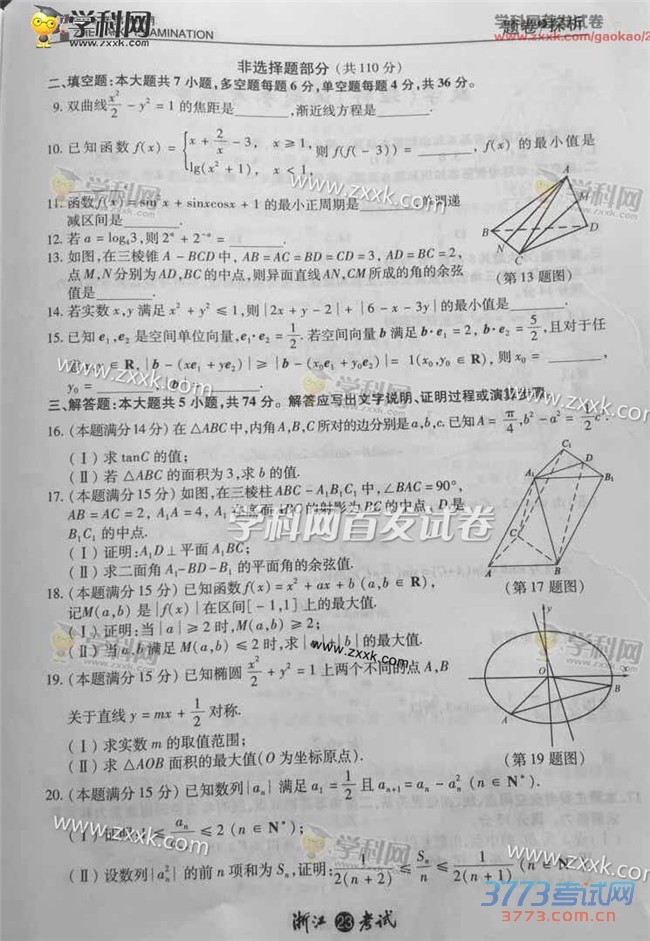 学科网
www.zxxk.com
EXAMINATION
学科网首发试卷
题卷·探析
www.zxxk.com/gaokao/2
非选择题部分 (共110分)
二、填空题:本大题共7小题,多空题每题6分,单空题每题4分,共36分。
9. 双曲线 x²/2 - y² = 1 的焦距是______,渐近线方程是______.
10. 已知函数 f(x) = { x + 2/x - 3, x ≥ 1, lg(x² + 1), x < 1, 则 f(f(-3)) = ______, f(x) 的最小值是
______.
11. 函数 f(x) = sin²x + sinxcosx + 1 的最小正周期是______,单调递
减区间是______.
12. 若 a = log₄3,则 2ᵃ + 2⁻ᵃ = ______.
13. 如图,在三棱锥 A - BCD 中, AB = AC = BD = CD = 3, AD = BC = 2,
点 M,N 分别为 AD,BC 的中点,则异面直线 AN,CM 所成的角的余弦
值是______.
A
M
B
D
N
C
(第13题图)
14. 若实数 x,y 满足 x² + y² ≤ 1,则 |2x + y - 2| + |6 - x - 3y| 的最小值是______.
15. 已知 e₁,e₂ 是空间单位向量,e₁·e₂ = 1/2. 若空间向量 b 满足 b·e₁ = 2, b·e₂ = 5/2,且对于任
意 x,y ∈ R, |b - (xe₁ + ye₂)| ≥ |b - (x₀e₁ + y₀e₂)| = 1(x₀,y₀ ∈ R), 则 x₀ = ______,
y₀ = ______, |b| = ______.
三、解答题:本大题共5小题,共74分。解答应写出文字说明、证明过程或演算步骤。
16. (本题满分14分) 在 △ABC 中,内角 A,B,C 所对的边分别是 a,b,c. 已知 A = π/4, b² - a² = 1/2 c².
(Ⅰ) 求 tanC 的值;
(Ⅱ) 若 △ABC 的面积为3,求 b 的值.
17. (本题满分15分) 如图,在三棱柱 ABC - A₁B₁C₁ 中, ∠BAC = 90°,
AB = AC = 2, A₁A = 4, A₁ 在底面 ABC 的射影为 BC 的中点, D 是
B₁C₁ 的中点.
(Ⅰ) 证明:A₁D ⊥ 平面 A₁BC;
(Ⅱ) 求二面角 A₁ - BD - B₁ 的平面角的余弦值.
C₁
D
A₁
B₁
C
A
B
(第17题图)
18. (本题满分15分) 已知函数 f(x) = x² + ax + b (a,b ∈ R),
记 M(a,b) 是 |f(x)| 在区间 [-1,1] 上的最大值.
(Ⅰ) 证明:当 |a| ≥ 2 时, M(a,b) ≥ 2;
(Ⅱ) 当 a,b 满足 M(a,b) ≤ 2 时,求 |a| + |b| 的最大值.
19. (本题满分15分) 已知椭圆 x²/2 + y² = 1 上两个不同的点 A,B
关于直线 y = mx + 1/2 对称.
(Ⅰ) 求实数 m 的取值范围;
(Ⅱ) 求 △AOB 面积的最大值(O 为坐标原点).
y
O
x
B
A
(第19题图)
20. (本题满分15分) 已知数列 {aₙ} 满足 a₁ = 1/2 且 aₙ₊₁ = aₙ - aₙ² (n ∈ N*).
(Ⅰ) 证明:1 ≤ aₙ/aₙ₊₁ ≤ 2 (n ∈ N*);
(Ⅱ) 设数列 {aₙ²} 的前 n 项和为 Sₙ,证明: 1/2(n + 2) ≤ Sₙ/n ≤ 1/2(n + 1) (n ∈ N*).
浙江 23 考试
3773考试网
3773.com.cn